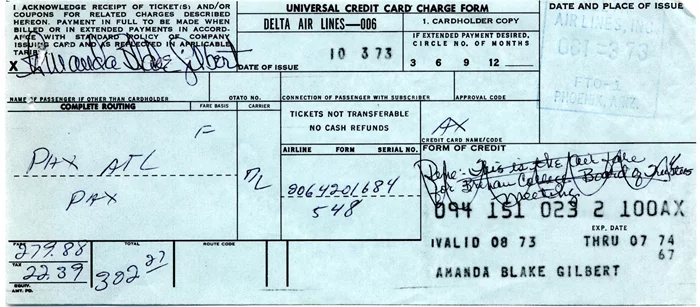 I ACKNOWLEDGE RECEIPT OF TICKET(S) AND/OR
COUPONS FOR RELATED CHARGES DESCRIBED
HEREON. PAYMENT IN FULL TO BE MADE WHEN
BILLED OR IN EXTENDED PAYMENTS IN ACCORD-
ANCE WITH STANDARD POLICY OF COMPANY
ISSUING CARD AND AS REFLECTED IN APPLICABLE
TARIFFS.
X Amanda Blake Gilbert
UNIVERSAL CREDIT CARD CHARGE FORM
DELTA AIR LINES—006
1. CARDHOLDER COPY
DATE OF ISSUE
10 3 73
IF EXTENDED PAYMENT DESIRED,
CIRCLE NO. OF MONTHS
3 6 9 12
DATE AND PLACE OF ISSUE
AIR LINES, INC.
OCT 3 73
FTO-1
PHOENIX, ARIZ.
NAME OF PASSENGER IF OTHER THAN CARDHOLDER
OTATO NO.
CONNECTION OF PASSENGER WITH SUBSCRIBER
APPROVAL CODE
COMPLETE ROUTING
FARE BASIS
CARRIER
F
PHX ATL
PHX
DL
TICKETS NOT TRANSFERABLE
NO CASH REFUNDS
AIRLINE FORM SERIAL NO.
0064201684
548
AX
CREDIT CARD NAME/CODE
FORM OF CREDIT
This is the air fare
for Brenau College Board of Trustees
meeting
094 151 023 2 100AX
EXP. DATE
VALID 08 73 THRU 07 74
67
AMANDA BLAKE GILBERT
FARE
279.88
TAX
22.39
EQUIV.
AMT. PD.
TOTAL
302.27
ROUTE CODE